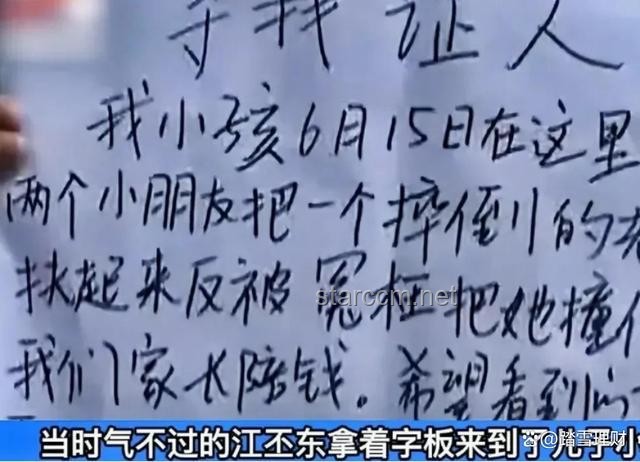 寻找证人
我小孩6月15日在这里
两个小朋友把一个摔倒的
扶起来反被冤枉把她撞
我们家长陪钱。希望看到
starccm.net
当时气不过的江丕东拿着字板来到了儿子小
@踏雪理财